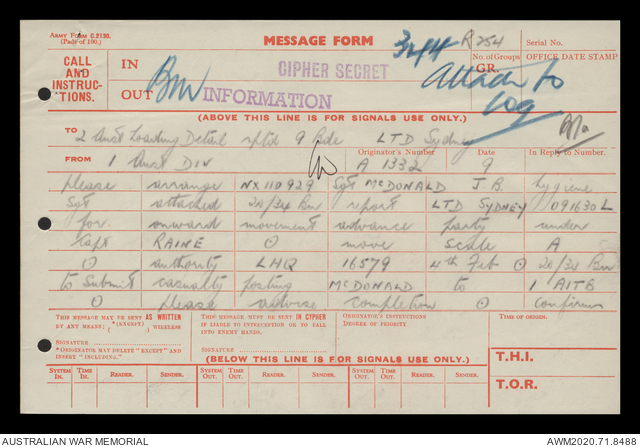 ARMY FORM C.2130.
(Pads of 100.)
MESSAGE FORM
R 254
Serial No.
CALL AND INSTRUC-TIONS.
IN
CIPHER SECRET
No. of Groups GR.
OFFICE DATE STAMP
OUT
INFORMATION
Attach to log
(ABOVE THIS LINE IS FOR SIGNALS USE ONLY.)
TO 2 Aust Loading Detail rptd 9 Bde LTD Sydney
Originator's Number. Date. In Reply to Number.
FROM 1 Aust Div A 1332 9
please arrange NX 110929 Sgt McDONALD J.B. hygiene
Sgt attached 20/34 Bn report LTD SYDNEY 091630L
for onward movement advance party under
Capt RAINE O move scale A
O authority LHQ 16579 4th Feb O 20/34 Bn
to submit casualty posting McDONALD to 1 AITB
O please advise completion O confirm
THIS MESSAGE MAY BE SENT AS WRITTEN
BY ANY MEANS. (EXCEPT) WIRELESS
SIGNATURE
*ORIGINATOR MAY DELETE "EXCEPT" AND
INSERT "INCLUDING."
THIS MESSAGE MUST BE SENT IN CIPHER
IF LIABLE TO INTERCEPTION OR TO FALL
INTO ENEMY HANDS.
SIGNATURE
ORIGINATOR'S INSTRUCTIONS
DEGREE OF PRIORITY
TIME OF ORIGIN.
(BELOW THIS LINE IS FOR SIGNALS USE ONLY.)
T.H.I.
T.O.R.
SYSTEM IN. TIME IN. READER. SENDER. SYSTEM OUT. TIME OUT. READER. SENDER. SYSTEM OUT. TIME OUT. READER. SENDER.
AUSTRALIAN WAR MEMORIAL
AWM2020.71.8488